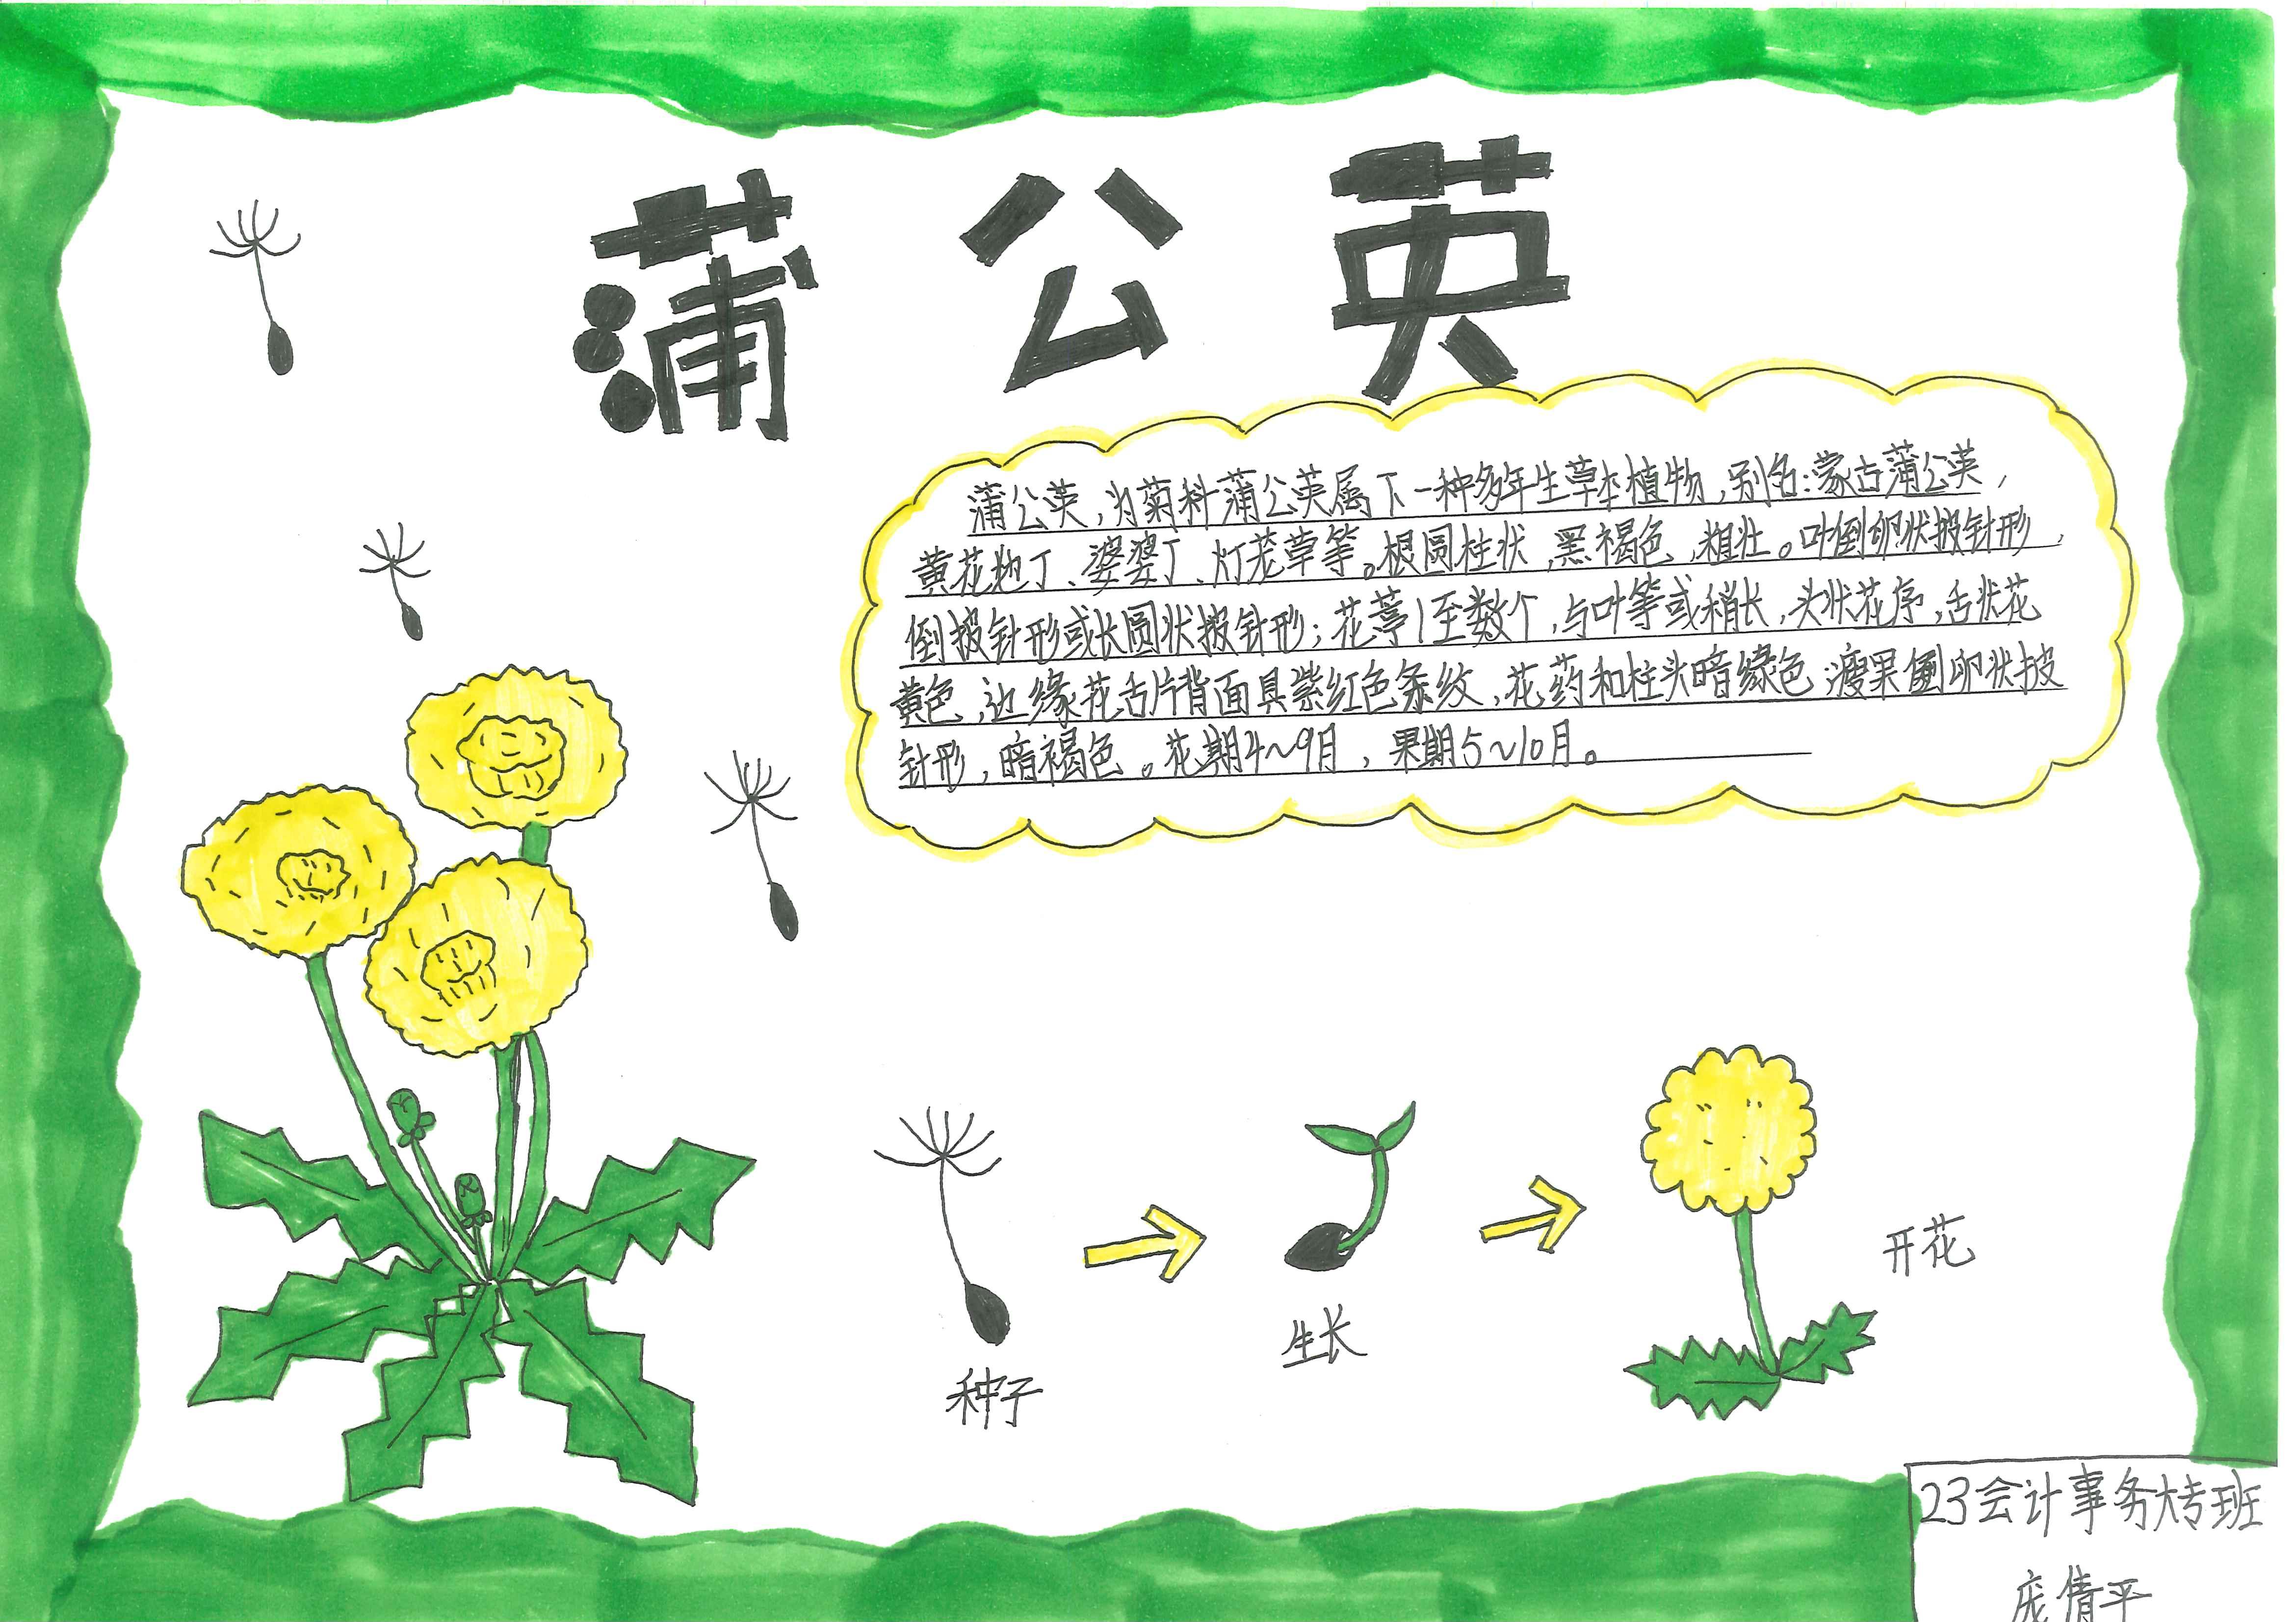 蒲公英
蒲公英,为菊科蒲公英属下一种多年生草本植物,别名:蒙古蒲公英,
黄花地丁、婆婆丁、灯茏草等。根圆柱状,黑褐色,粗壮。叶倒卵状披针形,
倒披针形或长圆状披针形;花葶1至数个,与叶等或稍长,头状花序,舌状花
黄色,边缘花舌片背面具紫红色条纹,花药和柱头暗绿色 瘦果倒卵状披
针形,暗褐色。花期4~9月,果期5~10月。
开花
生长
种子
23会计事务大专班
庞倩平